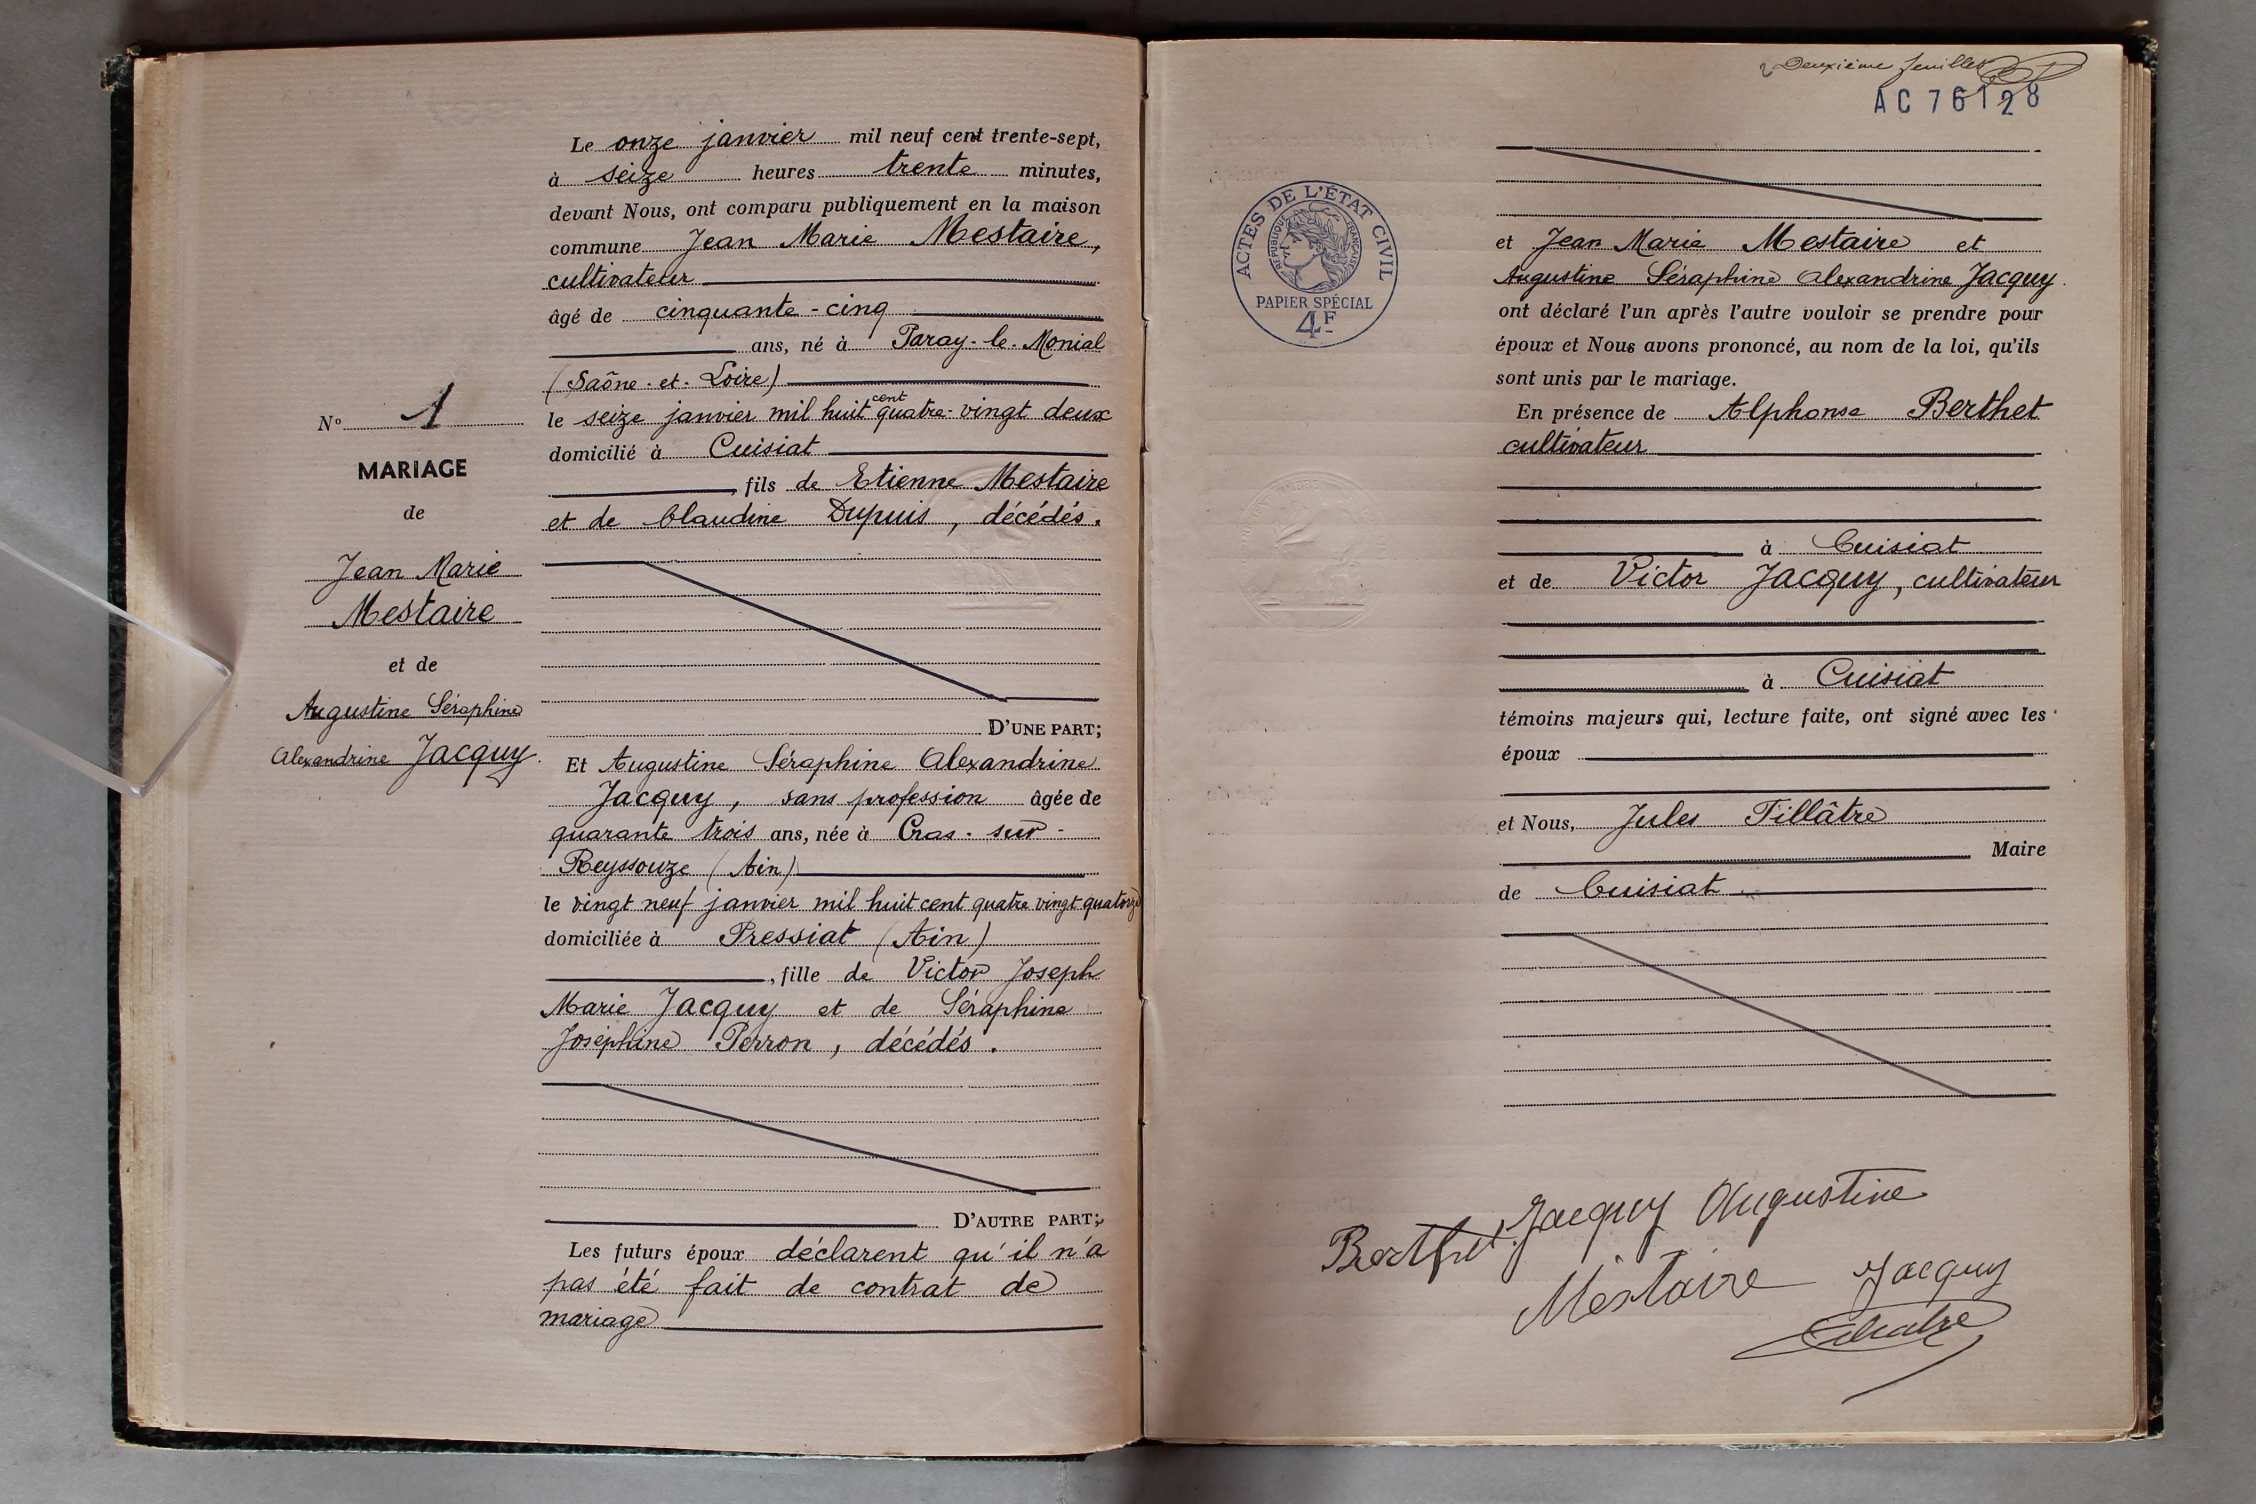 N° 1
MARIAGE
de
Jean Marie
Mestaire
et de
Augustine Séraphine
Alexandrine Jacquy.
Le onze janvier mil neuf cent trente-sept,
à seize heures trente minutes,
devant Nous, ont comparu publiquement en la maison
commune Jean Marie Mestaire,
cultivateur
âgé de cinquante-cinq
ans, né à Paray-le-Monial
(Saône-et-Loire)
le seize janvier mil huit cent quatre-vingt deux
domicilié à Cuisiat
, fils de Etienne Mestaire
et de Claudine Dupuis, décédés.
D'UNE PART;
Et Augustine Séraphine Alexandrine
Jacquy, sans profession âgée de
quarante trois ans, née à Cras-sur-
Reyssouze (Ain)
le vingt neuf janvier mil huit cent quatre vingt quatorze
domiciliée à Pressiat (Ain)
, fille de Victor Joseph
Marie Jacquy et de Séraphine
Joséphine Perron, décédés.
D'AUTRE PART;
Les futurs époux déclarent qu'il n'a
pas été fait de contrat de
mariage
Deuxième feuillet
AC 76128
ACTES DE L'ÉTAT CIVIL
RÉPUBLIQUE FRANÇAISE
PAPIER SPÉCIAL
4F
et Jean Marie Mestaire et
Augustine Séraphine Alexandrine Jacquy.
ont déclaré l'un après l'autre vouloir se prendre pour
époux et Nous avons prononcé, au nom de la loi, qu'ils
sont unis par le mariage.
En présence de Alphonse Berthet
cultivateur
à Cuisiat
et de Victor Jacquy, cultivateur
à Cuisiat
témoins majeurs qui, lecture faite, ont signé avec les
époux
et Nous, Jules Tillâtre
Maire
de Cuisiat
Jacquy Augustine
Berthet
Mestaire Jacquy